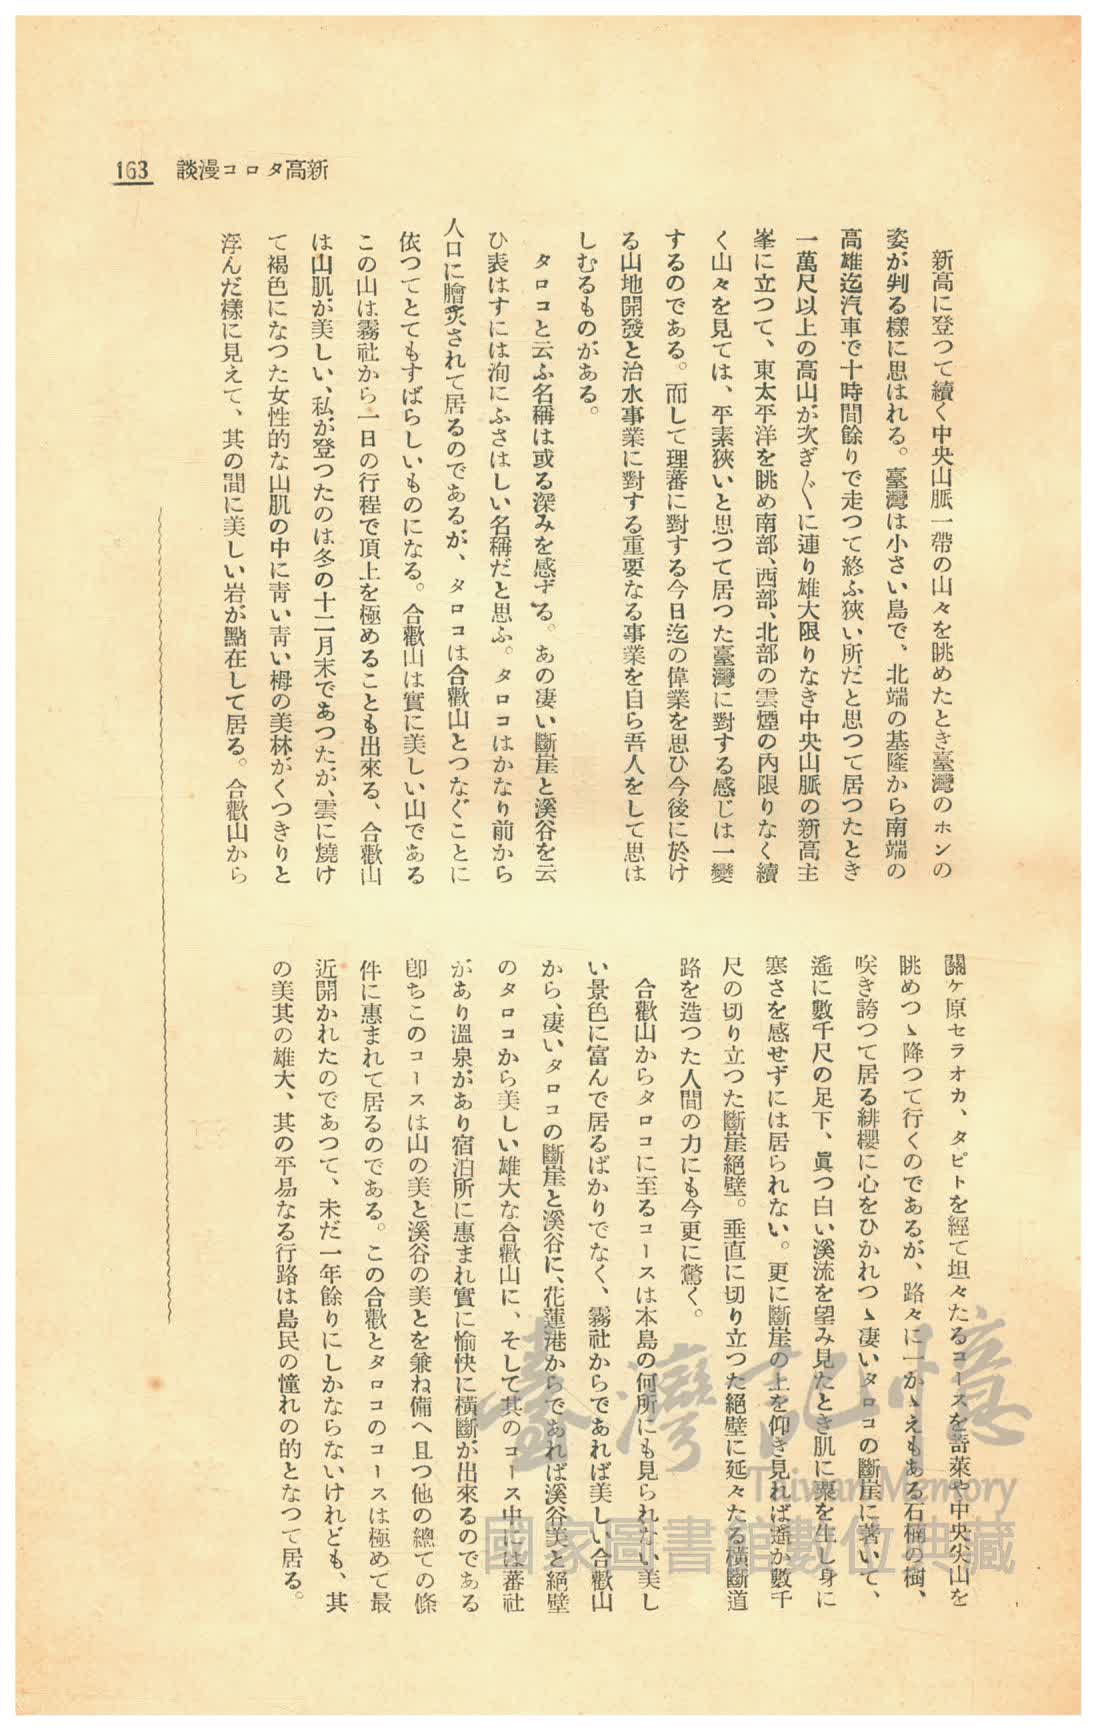 163
談漫コロタ高新
新高に登つて續く中央山脈一帶の山々を眺めたとき臺灣のホンの
姿が判る樣に思はれる。臺灣は小さい島で、北端の基隆から南端の
高雄迄汽車で十時間餘りで走つて終ふ狹い所だと思つて居つたとき
一萬尺以上の高山が次ぎ〴〵に連り雄大限りなき中央山脈の新高主
峯に立つて、東太平洋を眺め南部、西部、北部の雲煙の內限りなく續
く山々を見ては、平素狹いと思つて居つた臺灣に對する感じは一變
するのである。而して理蕃に對する今日迄の偉業を思ひ今後に於け
る山地開發と治水事業に對する重要なる事業を自ら吾人をして思は
しむるものがある。
タロコと云ふ名稱は或る深みを感ずる。あの凄い斷崖と溪谷を云
ひ表はすには洵にふさはしい名稱だと思ふ。タロコはかなり前から
人口に膾炙されて居るのであるが、タロコは合歡山とつなぐことに
依つてとてもすばらしいものになる。合歡山は實に美しい山である
この山は霧社から一日の行程で頂上を極めることも出來る、合歡山
は山肌が美しい、私が登つたのは冬の十二月末であつたが、雲に燒け
て褐色になつた女性的な山肌の中に靑い靑い栂の美林がくつきりと
浮んだ樣に見えて、其の間に美しい岩が點在して居る。合歡山から
關ヶ原セラオカ、タビトを經て坦々たるコースを奇萊や中央尖山を
眺めつゝ降つて行くのであるが、路々に一かゝえもある石楠の樹、
咲き誇つて居る緋櫻に心をひかれつゝ凄いタロコの斷崖に著いて、
遙に數千尺の足下、眞つ白い溪流を望み見たとき肌に粟を生じ身に
寒さを感せずには居られない。更に斷崖の上を仰き見れば遙か數千
尺の切り立つた斷崖絕壁。垂直に切り立つた絕壁に延々たる橫斷道
路を造つた人間の力にも今更に驚く。
合歡山からタロコに至るコースは本島の何所にも見られない美し
い景色に富んで居るばかりでなく、霧社からであれば美しい合歡山
から、凄いタロコの斷崖と溪谷に、花蓮港からであれば溪谷美と絕壁
のタロコから美しい雄大な合歡山に、そして其のコース中には蕃社
があり溫泉があり宿泊所に惠まれ實に愉快に橫斷が出來るのである
卽ちこのコースは山の美と溪谷の美とを兼ね備へ且つ他の總ての條
件に惠まれて居るのである。この合歡とタロコのコースは極めて最
近開かれたのであつて、未だ一年餘りにしかならないけれども、其
の美其の雄大、其の平易なる行路は島民の憧れの的となつて居る。
臺灣記憶
Taiwan Memory
國家圖書館數位典藏